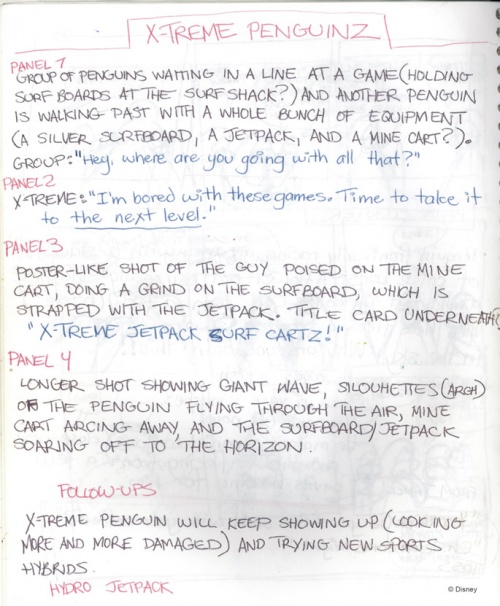 X-TREME PENGUINZ
PANEL 1
GROUP OF PENGUINS WAITING IN A LINE AT A GAME (HOLDING
SURF BOARDS AT THE SURF SHACK?) AND ANOTHER PENGUIN
IS WALKING PAST WITH A WHOLE BUNCH OF EQUIPMENT
(A SILVER SURFBOARD, A JETPACK, AND A MINE CART?).
GROUP: "Hey, where are you going with all that?"
PANEL 2
X-TREME: "I'm bored with these games. Time to take it
to the next level."
PANEL 3
POSTER-LIKE SHOT OF THE GUY POISED ON THE MINE
CART, DOING A GRIND ON THE SURFBOARD, WHICH IS
STRAPPED WITH THE JETPACK. TITLE CARD UNDERNEATH
"X-TREME JETPACK SURF CARTZ!"
PANEL 4
LONGER SHOT SHOWING GIANT WAVE, SILOUHETTES (ARGH)
OF THE PENGUIN FLYING THROUGH THE AIR, MINE
CART ARCING AWAY, AND THE SURFBOARD/JETPACK
SOARING OFF TO THE HORIZON.
FOLLOW-UPS
X-TREME PENGUIN WILL KEEP SHOWING UP (LOOKING
MORE AND MORE DAMAGED) AND TRYING NEW SPORTS
HYBRIDS.
HYDRO JETPACK
© Disney